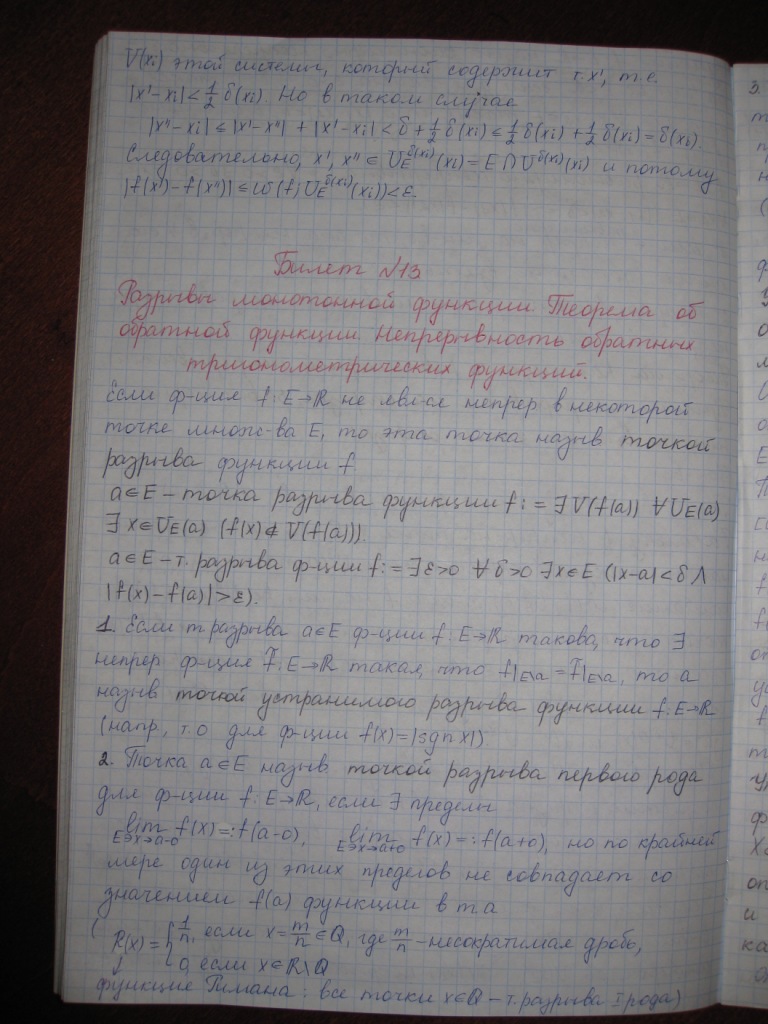 V(xᵢ) этой системы, который содержит т. x', т.е.
|x'-xᵢ|<½ δ(xᵢ). Но в таком случае
|x''-xᵢ|≤|x'-x''| + |x'-xᵢ|<δ+½ δ(xᵢ)≤½ δ(xᵢ)+½ δ(xᵢ)=δ(xᵢ).
Следовательно, x', x''∈U_E^{δ(xᵢ)}(xᵢ)=E∩U^{δ(xᵢ)}(xᵢ) и потому
|f(x')-f(x'')|≤ω(f; U_E^{δ(xᵢ)}(xᵢ))<ε.
Билет №13
Разрывы монотонной функции. Теорема об
обратной функции. Непрерывность обратных
тригонометрических функций.
Если ф-ция f: E→ℝ не явл-ся непрер в некоторой
точке множ-ва E, то эта точка назыв точкой
разрыва функции f
a∈E – точка разрыва функции f := ∃V(f(a)) ∀U_E(a)
∃x∈U_E(a) (f(x)∉V(f(a))).
a∈E – т. разрыва ф-ции f := ∃ε>0 ∀δ>0 ∃x∈E (|x-a|<δ ∧
|f(x)-f(a)|>ε).
1. Если т разрыва a∈E ф-ции f: E→ℝ такова, что ∃
непрер ф-ция f̃: E→ℝ такая, что f|_{E\a} = f̃|_{E\a}, то a
назыв точкой устранимого разрыва функции f: E→ℝ
(напр, т. 0 для ф-ции f(x)=|sgn x|)
2. Точка a∈E назыв точкой разрыва первого рода
для ф-ции f: E→ℝ, если ∃ пределы
lim_{E∋x→a-0} f(x)=:f(a-0), lim_{E∋x→a+0} f(x)=:f(a+0), но по крайней
мере один из этих пределов не совпадает со
значением f(a) функции в т a
(R(x)={1/n, если x=m/n∈Q, где m/n – несократимая дробь,
0, если x∈ℝ\Q
функция Римана: все точки x∈Q – т. разрыва I рода)
3.